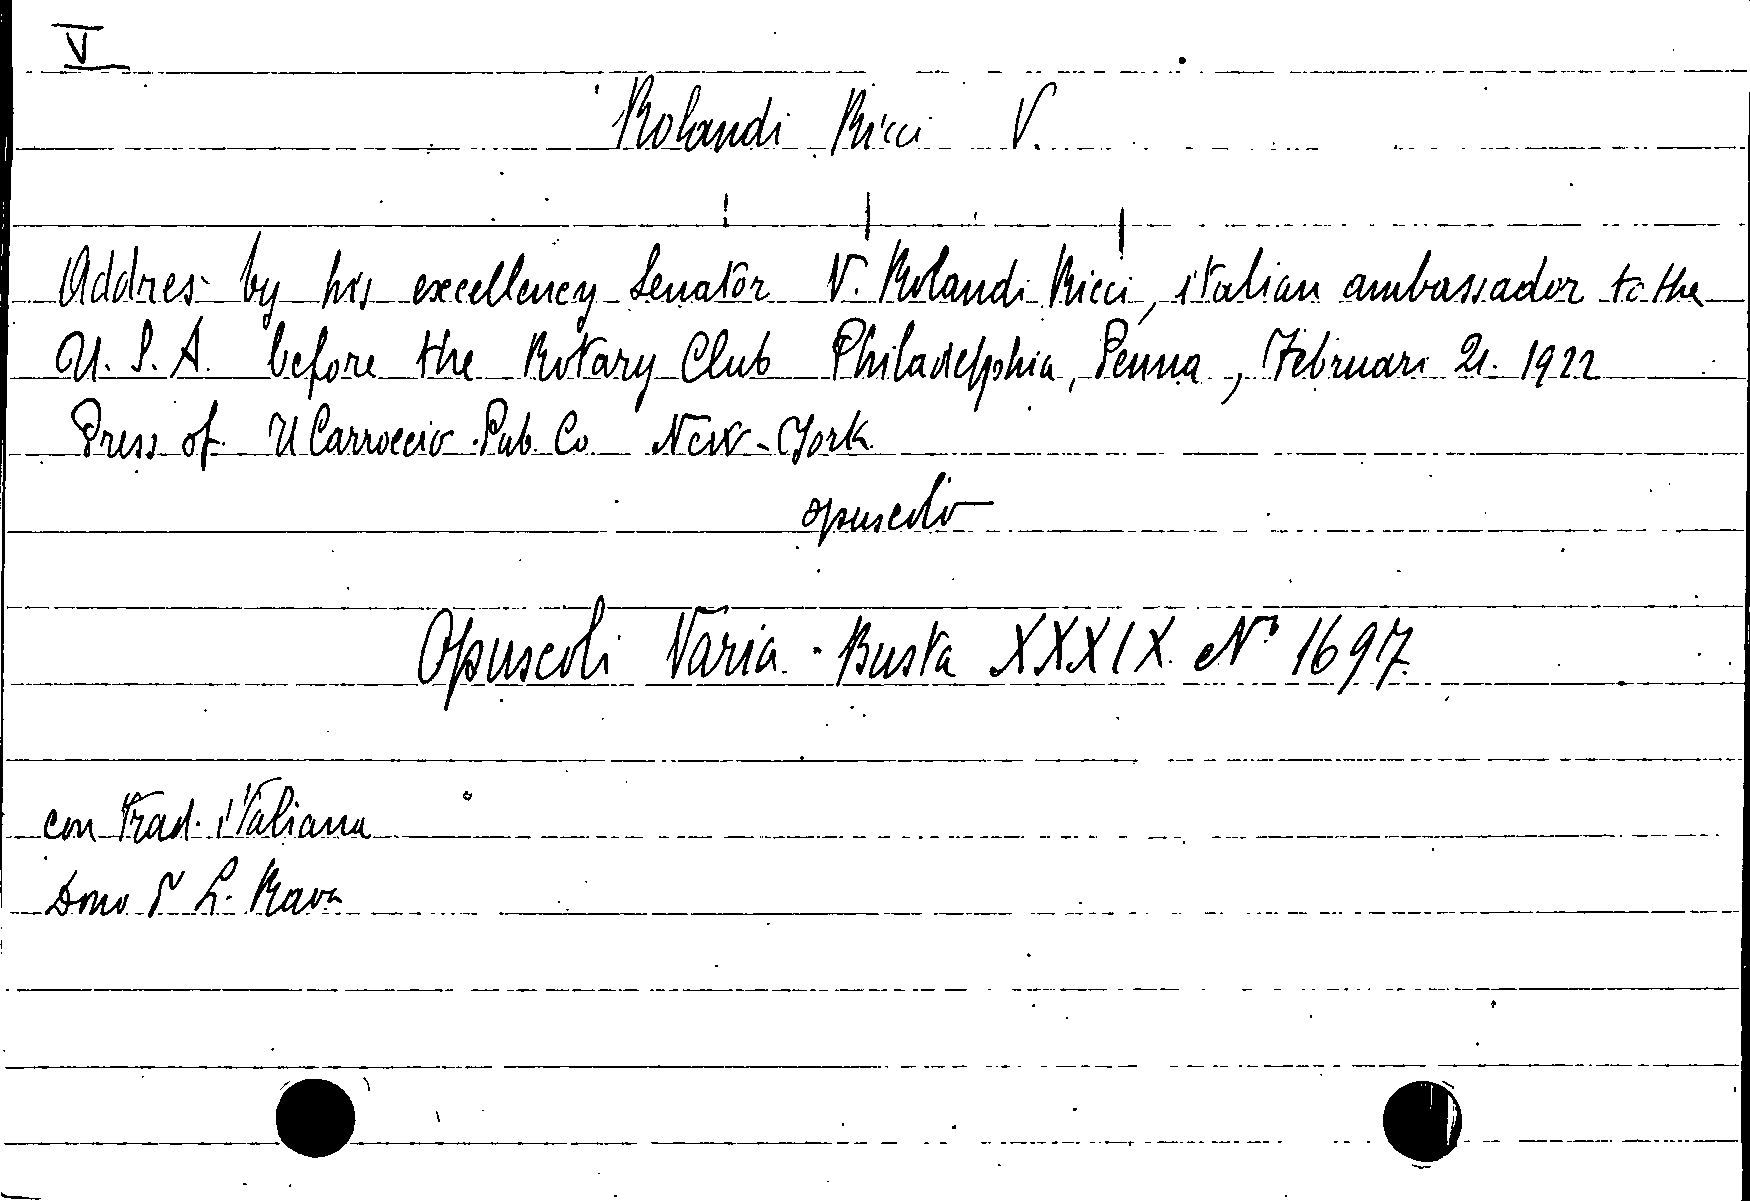 V
Rolandi Ricci V.
Addres by his excellency Senator V. Rolandi Ricci, italian ambassador to the
U. S. A. before the Rotary Club Philadelphia, Penna, Februari 21. 1922
Press of Il Carroccio Pub. Co New-York
opuscolo
Opuscoli Varia - Busta XXXIX N° 1697.
con trad. italiana
Dono L. Rava